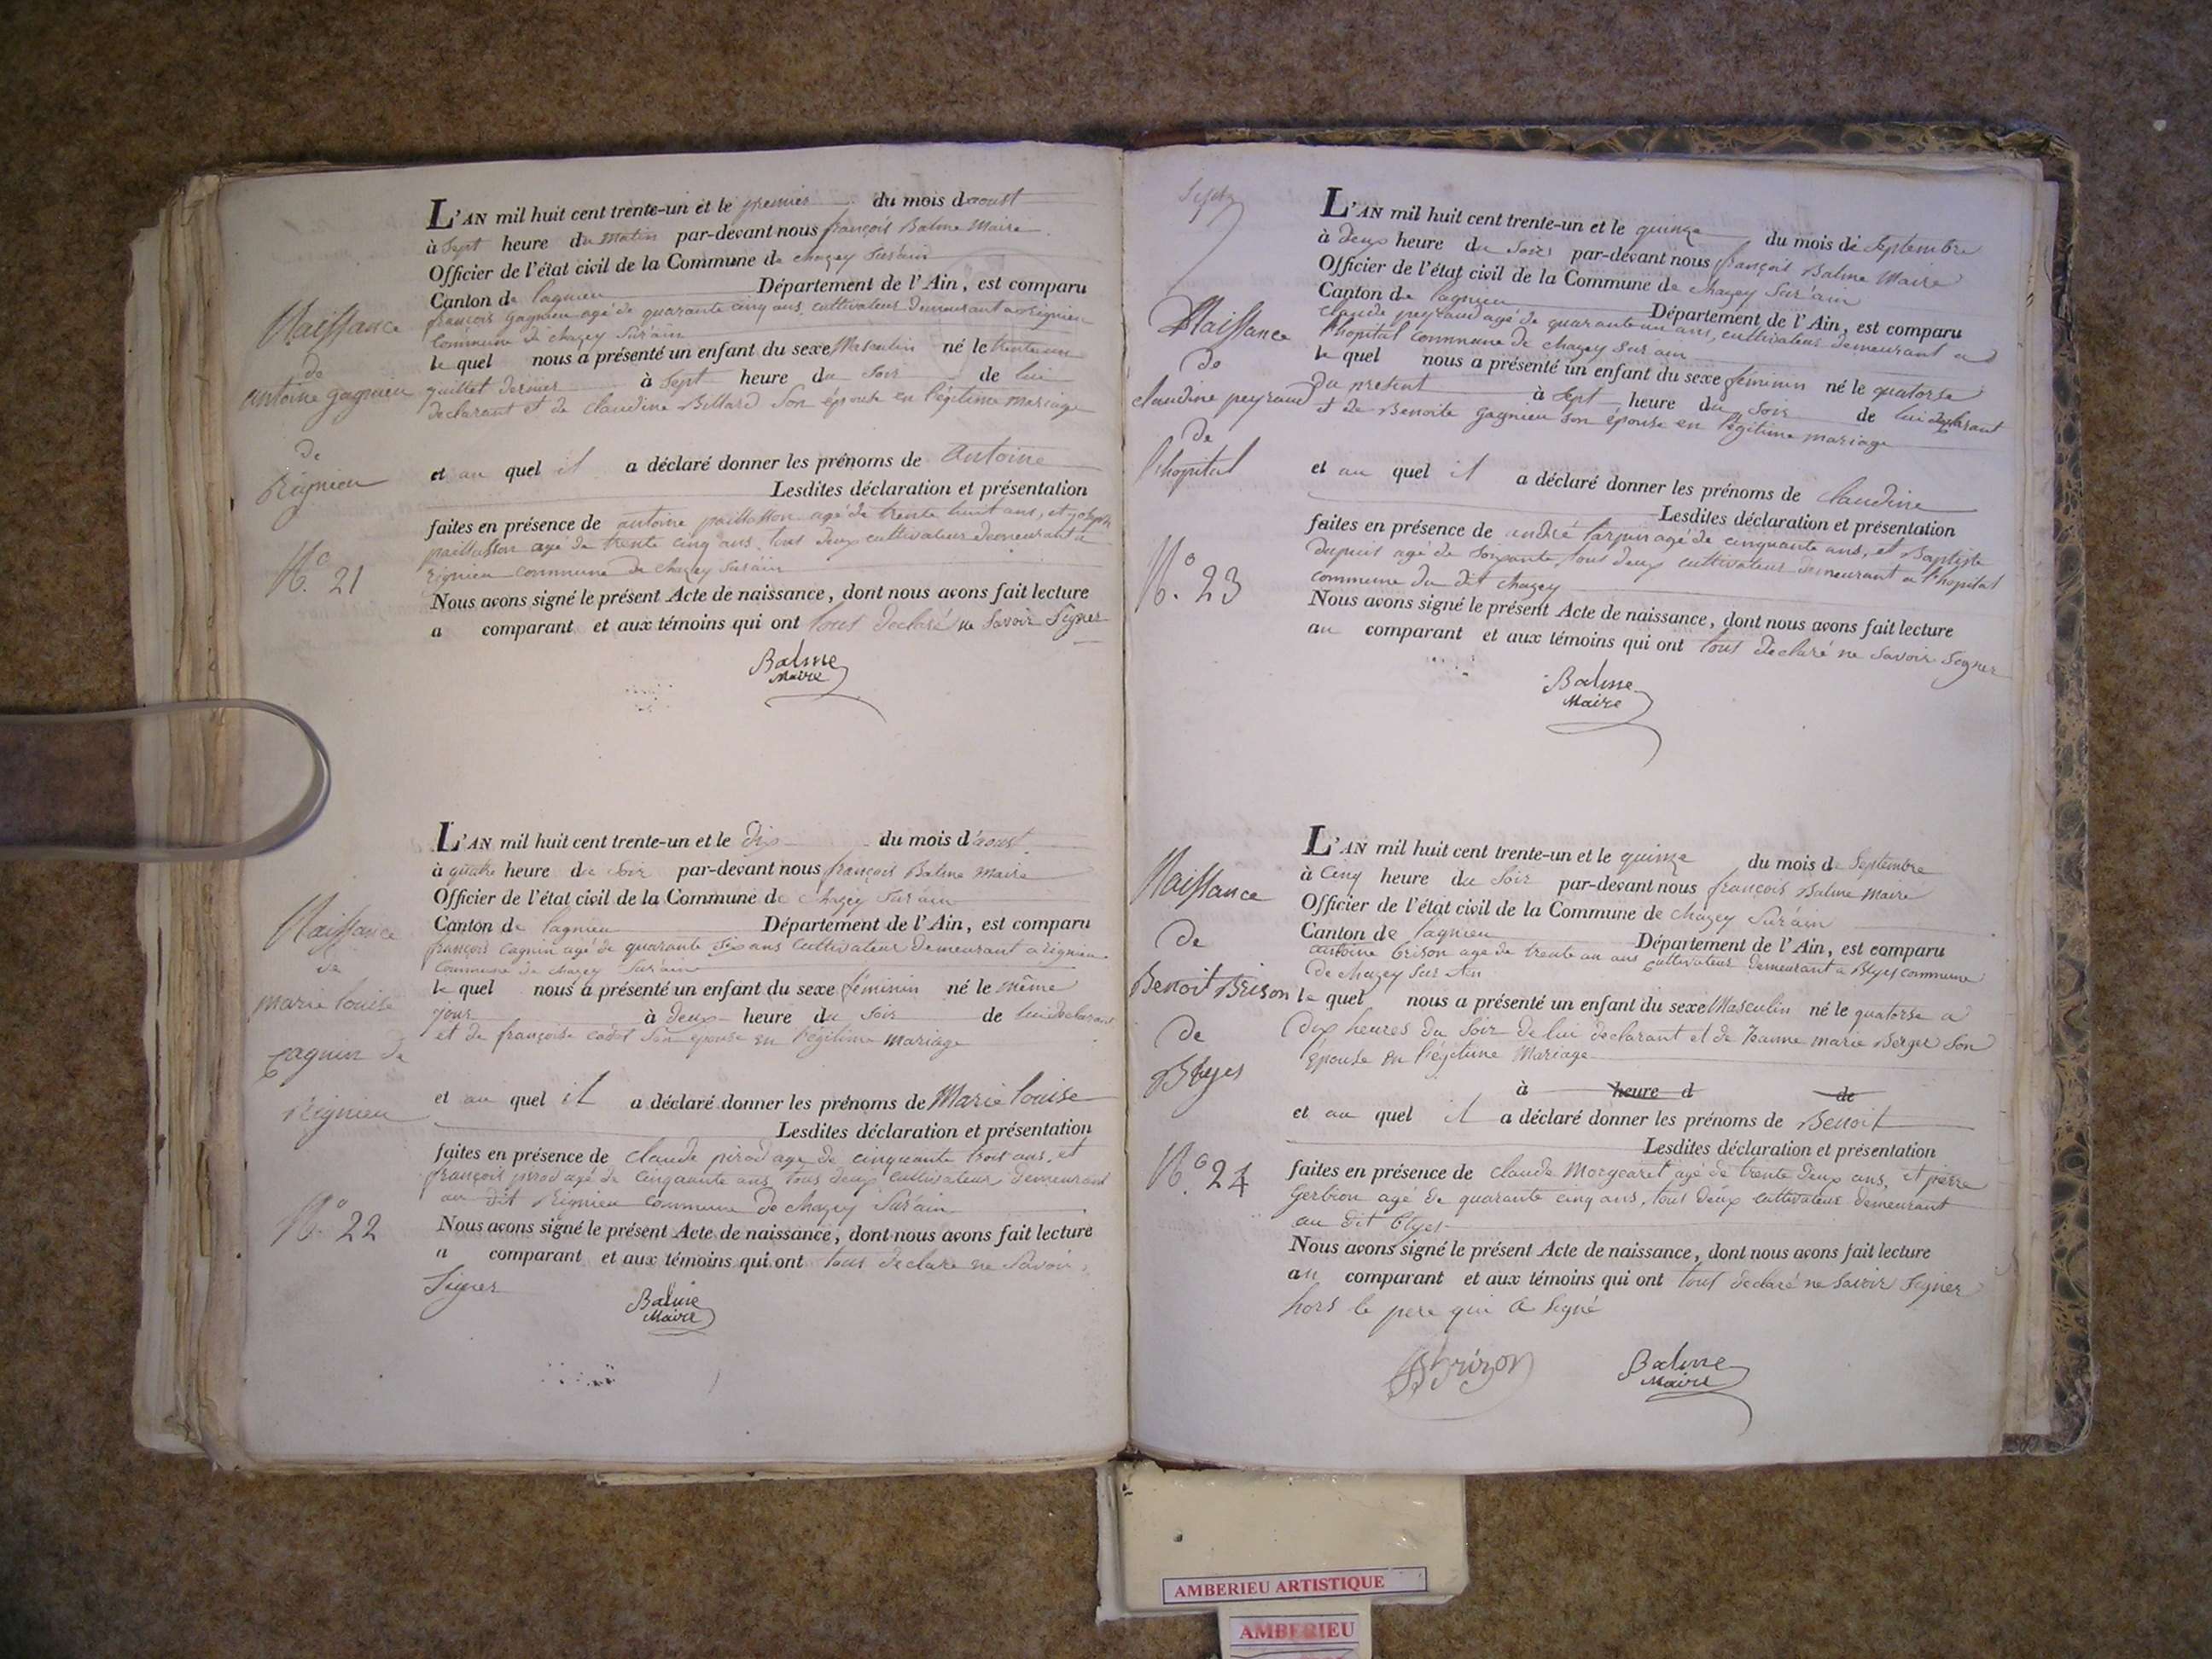 Naissance
de
antoine gagnieu
de
Rignieu
N.° 21
L'AN mil huit cent trente-un et le premier du mois d'aoust
à Sept heure du matin par-devant nous françois Balme Maire
Officier de l'état civil de la Commune de chazey Sur'ain
Canton de lagnieu Département de l'Ain, est comparu
françois gagnieu agé de quarante cinq ans cultivateur demeurant a Rignieu
Commune de chazey Sur'ain
le quel nous a présenté un enfant du sexe Masculin né le trente un
juillet dernier à Sept heure du Soir de lui
declarant et de claudine Billard Son épouse en légitime mariage
et au quel il a déclaré donner les prénoms de Antoine
Lesdites déclaration et présentation
faites en présence de antoine paillasson agé de trente huit ans, et joseph
paillasson agé de trente cinq ans tous deux cultivateur demeurant a
Rignieu commune de chazey Sur ain
Nous avons signé le présent Acte de naissance, dont nous avons fait lecture
a comparant et aux témoins qui ont tous declaré ne Savoir Signer
Balme
Maire
Naissance
de
marie louise
cagnin de
Rignieu
N° 22
L'AN mil huit cent trente-un et le dix du mois d'aoust
à quatre heure du Soir par-devant nous françois Balme Maire
Officier de l'état civil de la Commune de Chazey Sur ain
Canton de lagnieu Département de l'Ain, est comparu
françois cagnin agé de quarante Six ans Cultivateur demeurant a Rignieu
Commune de chazey Sur'ain
le quel nous a présenté un enfant du sexe féminin né le même
jour à deux heure du Soir de lui declarant
et de françoise cadot Son epouse en légitime mariage
et au quel il a déclaré donner les prénoms de Marie louise
Lesdites déclaration et présentation
faites en présence de claude pirod age de cinquante trois ans, et
françois pirod agé de cinquante ans tous deux cultivateur demeurant
au dit Rignieu commune de chazey Sur'ain
Nous avons signé le présent Acte de naissance, dont nous avons fait lecture
a comparant et aux témoins qui ont tous declare ne Savoir
Signer
Balme
Maire
Naissance
de
claudine peyraud
de
l'hopital
N.° 23
L'AN mil huit cent trente-un et le quinze du mois de Septembre
à deux heure du Soir par-devant nous françois Balme Maire
Officier de l'état civil de la Commune de chazey Sur'ain
Canton de lagnieu Département de l'Ain, est comparu
claude peyraud agé de quarante un ans, cultivateur demeurant a
l'hopital commune de chazey Sur ain
le quel nous a présenté un enfant du sexe féminin né le quatorse
du present à Sept heure du Soir de lui declarant
et de Benoite gagnieu Son épouse en légitime mariage
et au quel il a déclaré donner les prénoms de claudine
Lesdites déclaration et présentation
faites en présence de andré agé de cinquante ans, et Baptiste
dupuis agé de Soixante tous deux cultivateur demeurant a l'hopital
commune du dit chazey
Nous avons signé le présent Acte de naissance, dont nous avons fait lecture
au comparant et aux témoins qui ont tous declaré ne Savoir Signer
Balme
Maire
Naissance
de
Benoit Brison
de
Blyes
N.° 24
L'AN mil huit cent trente-un et le quinze du mois de Septembre
à Cinq heure du Soir par-devant nous françois Balme Maire
Officier de l'état civil de la Commune de chazey Sur'ain
Canton de lagnieu Département de l'Ain, est comparu
antoine brison agé de trente un ans cultivateur demeurant a Blyes commune
de chazey Sur Ain
le quel nous a présenté un enfant du sexe Masculin né le quatorse a
dix heures du Soir de lui declarant et de Jeanne marie Berger Son
épouse en légitime Mariage
à heure d de
et au quel il a déclaré donner les prénoms de Benoit
Lesdites déclaration et présentation
faites en présence de claude agé de trente deux ans, et pierre
Gerbion agé de quarante cinq ans, tous deux cultivateur demeurant
au dit blyes
Nous avons signé le présent Acte de naissance, dont nous avons fait lecture
au comparant et aux témoins qui ont tous declaré ne Savoir Signer
hors le pere qui a Signé
Brizon
Balme
Maire
AMBERIEU ARTISTIQUE
AMBERIEU